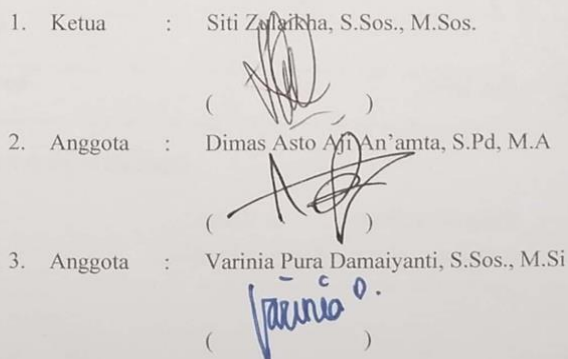 1. Ketua : Siti Zulaikha, S.Sos., M.Sos.
( )
2. Anggota : Dimas Asto Aji An'amta, S.Pd, M.A
( )
3. Anggota : Varinia Pura Damaiyanti, S.Sos., M.Si
Varinia D.
( )